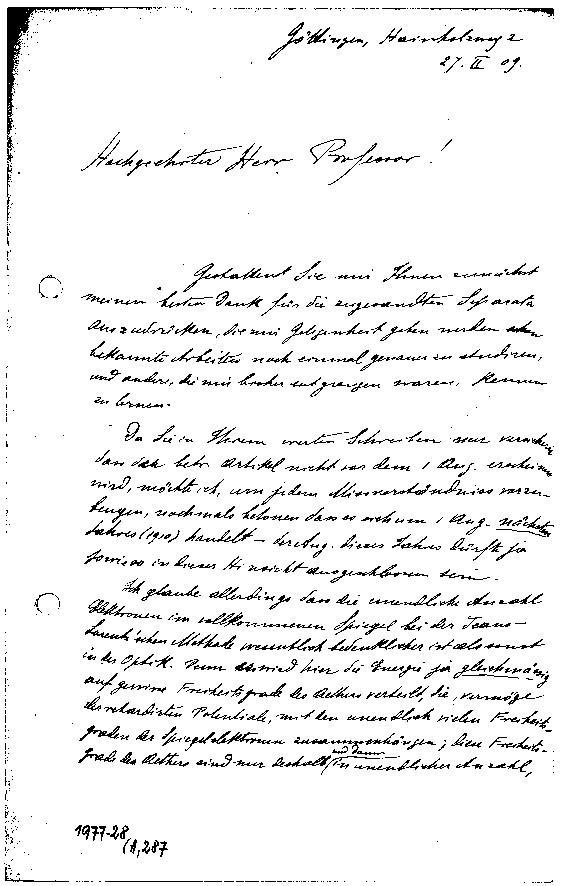 Göttingen, Hainholzweg 2
27. II 09.
Hochgeehrter Herr Professor!
Gestatten Sie mir Ihnen zunächst
meinen besten Dank für die zugesandten Separata
auszudrücken, die mir Gelegenheit geben werden schon
bekannte Arbeiten noch einmal genauer zu studiren,
und andere, die mir bisher entgangen waren, kennen
zu lernen.
Da Sie in Ihrem werten Schreiben nur
dass der betr. Artikel nicht vor dem 1 Aug. erscheinen
wird, möchte ich, um jedem Missverständniss vorzu-
beugen, nochmals betonen dass es sich um 1 Aug. nächsten
Jahres (1910) handelt – der Aug. dieses Jahres dürfte ja
sowieso in dieser Hinsicht ausgeschlossen sein.
Ich glaube allerdings dass die unendliche Anzahl
Elektronen im vollkommenen Spiegel bei der Jeans-
Lorentz'schen Methode wesentlich bedenklicher ist als sonst
in der Optik. Denn es wird hier die Energie ja gleichmässig
auf gewisse Freiheitsgrade des Aethers verteilt die, vermöge
der retardirten Potentiale, mit den unendlich vielen Freiheits-
graden der Spiegelelektronen zusammenhängen; diese Freiheits-
grade des Aethers sind nur deshalb in unendlicher Anzahl,
und dann
1977-28
(A,287